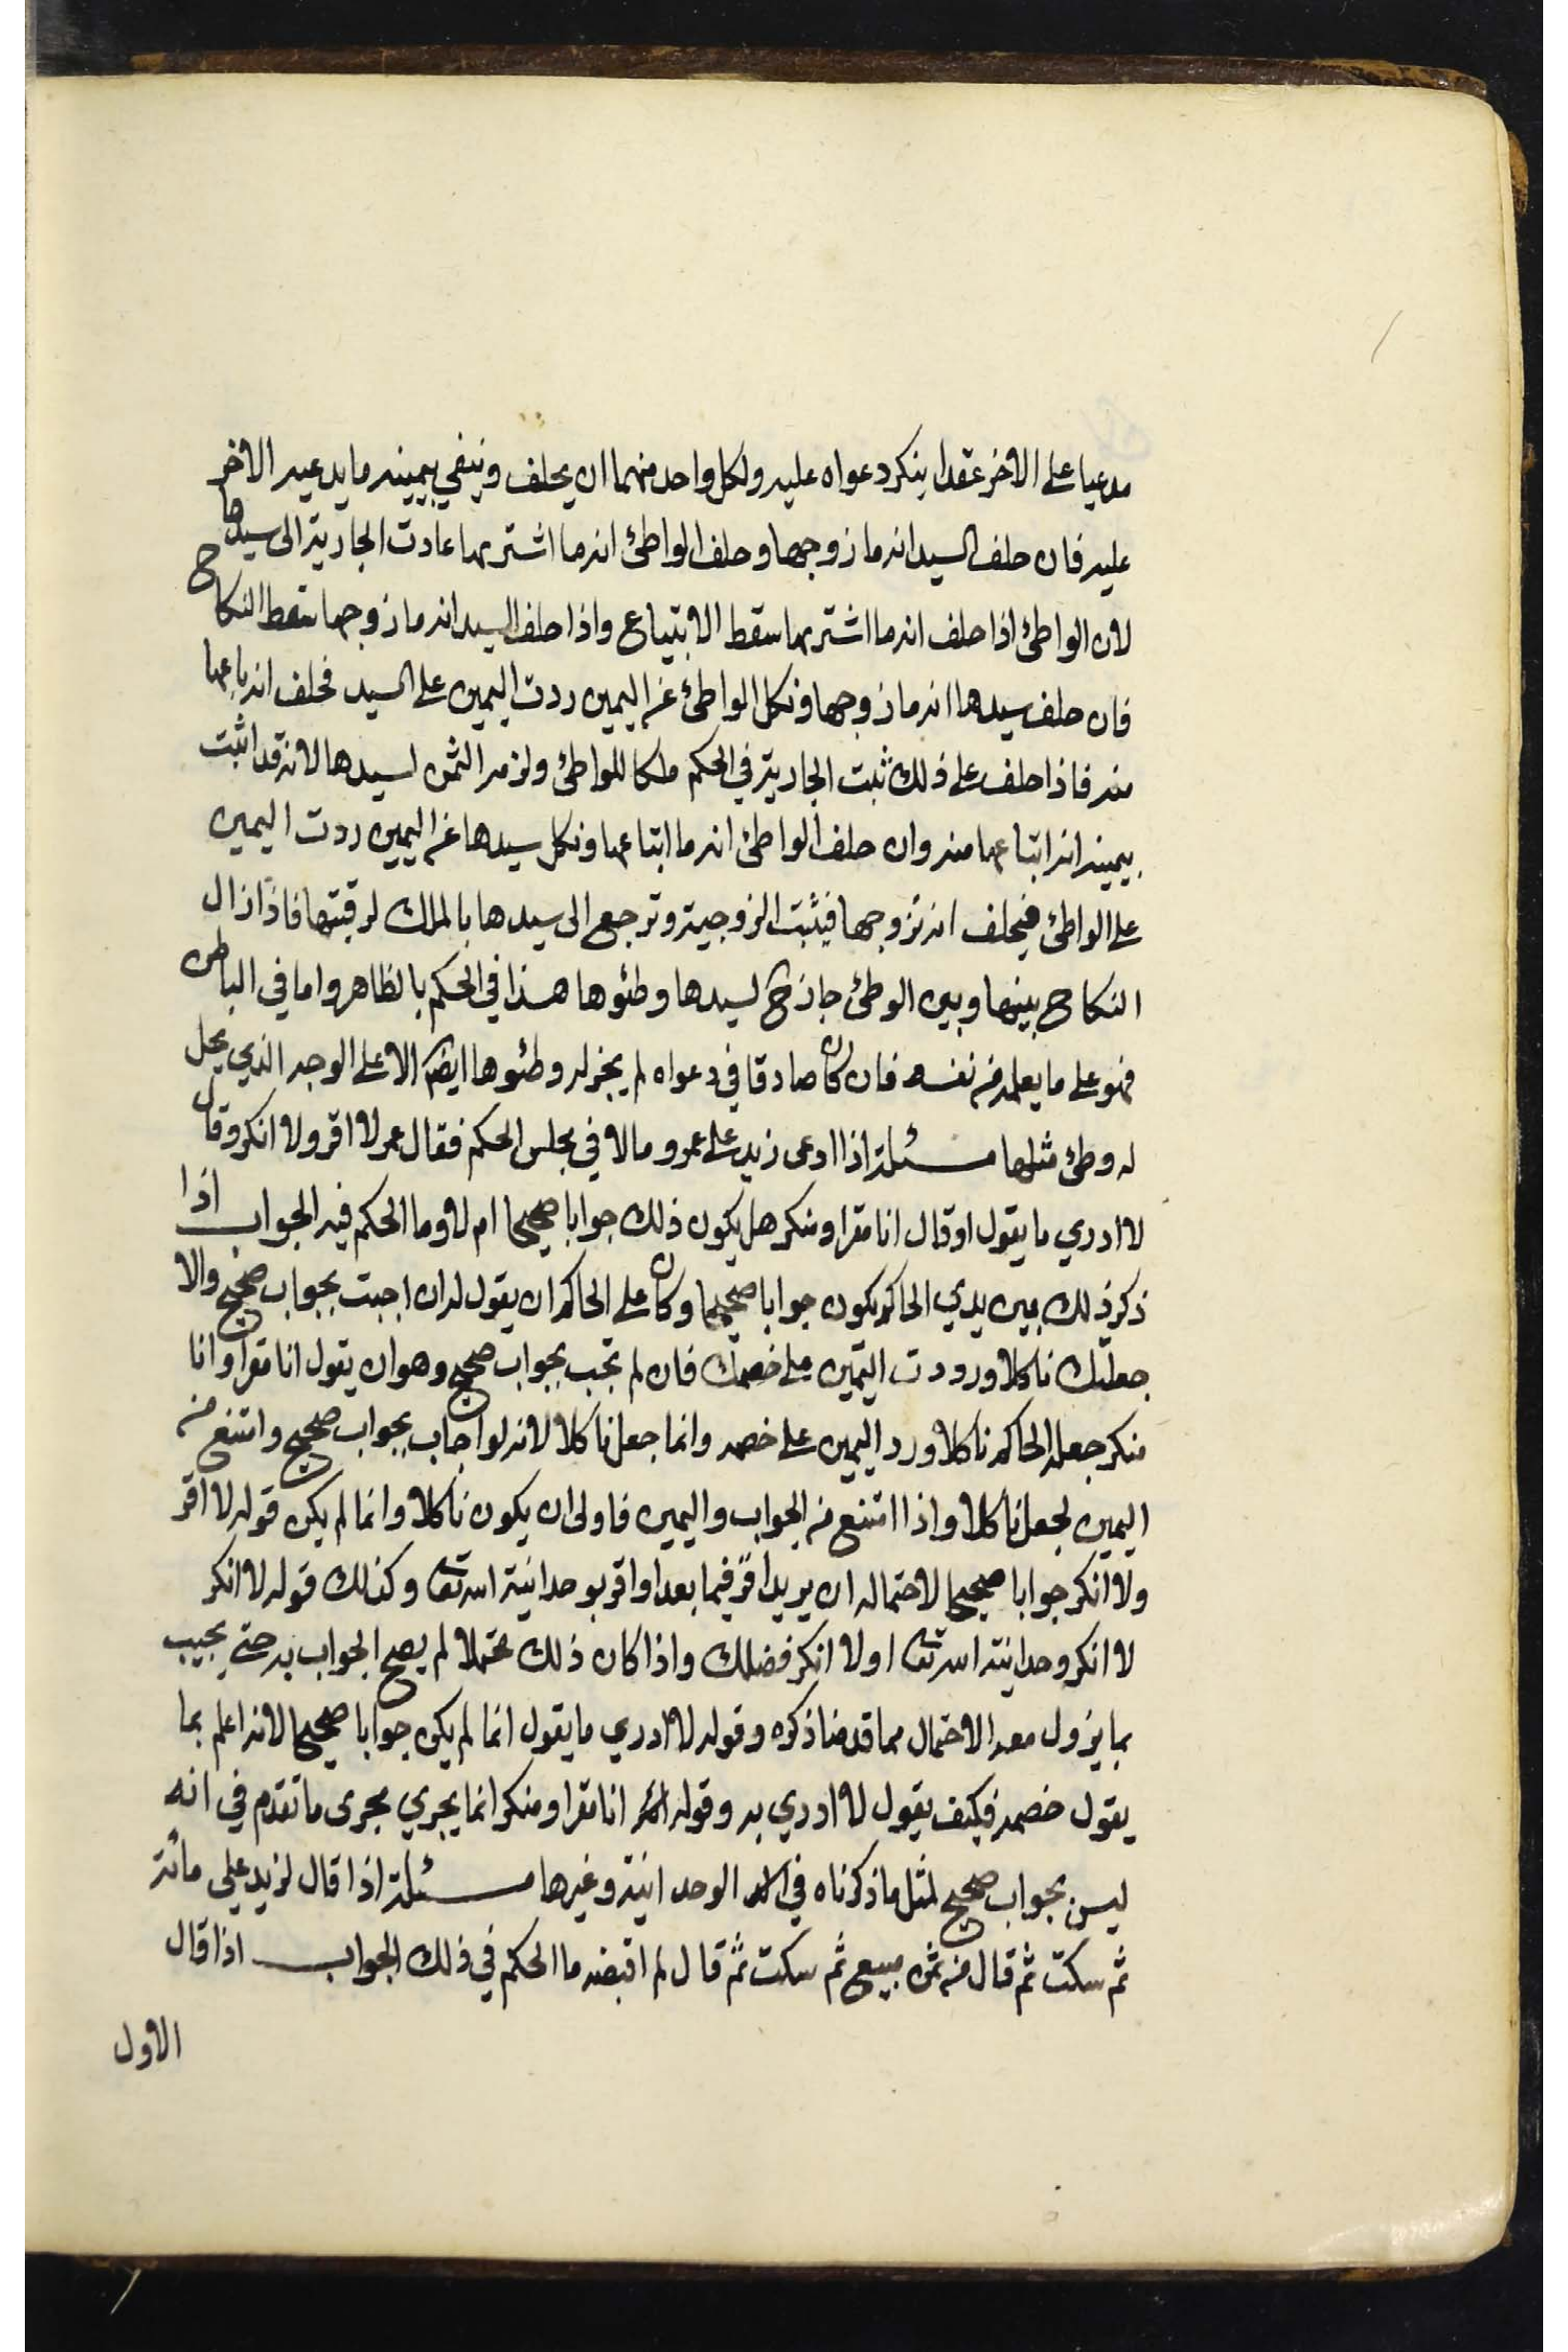 مدعيا على الاخر عقدا ينكر دعواه عليه ولكل واحد منهما ان يحلف وينفي بيمينه ما يدعيه الاخر
عليه فان حلف السيد انه ما زوجها وحلف الواطئ انه ما اشتريها عادت الجارية الى سيدها
لان الواطئ اذا حلف انه ما اشتريها سقط الابتياع واذا حلف السيد انه ما زوجها سقط النكاح
فان حلف سيدها انه ما زوجها ونكل الواطئ عن اليمين ردت اليمين على السيد فحلف انه باعها
منه فاذا حلف على ذلك ثبت الجارية في الحكم ملكا للواطئ ولزمه الثمن لسيدها لانه قد اثبت
بيمينه انه ابتاعها منه وان حلف الواطئ انه ما ابتاعها ونكل سيدها عن اليمين ردت اليمين
على الواطئ فيحلف انه تزوجها فيثبت الزوجية وترجع الى سيدها بالملك لرقبتها فاذا زال
النكاح بينها وبين الوطئ جاز ح لسيدها وطئوها هذا في الحكم بالظاهر واما في الباطن
فهو على ما يعلمه من نفسه فان كان صادقا في دعواه لم يجز له وطئوها ايضا الا على الوجه الذي يحل
له وطئ مثلها مسئلة اذا ادعى زيد على عمرو مالا في مجلس الحكم فقال عمر لا اقر ولا انكر وقال
لا ادري ما يقول او قال انا مقر او منكر هل يكون ذلك جوابا صحيحا ام لا وما الحكم فيه الجواب اذا
ذكر ذلك بين يدي الحاكم يكون جوابا صحيحا وكان على الحاكم ان يقول له ان اجبت بجواب صحيح والا
جعلتك ناكلا ورددت اليمين على خصمك فان لم تجب بجواب صحيح وهو ان يقول انا مقر او انا
منكر جعله الحاكم ناكلا ورد اليمين على خصمه وانما جعل ناكلا لانه لو اجاب بجواب صحيح وامتنع من
اليمين لجعل ناكلا واذا امتنع من الجواب واليمين فاولى ان يكون ناكلا وانما لم يكن قوله لا اقر
ولا انكر جوابا صحيحا لاحتماله ان يريد اقر فيما بعد او اقر بوحدانية الله تعا وكذلك قوله لا انكر
لا انكر وحدانية الله تعا او لا انكر فضلك واذا كان ذلك محتملا لم يصح الجواب به حتى يجيب
بما يزول معه الاحتمال مما قدمنا ذكره وقوله لا ادري ما يقول انما لم يكن جوابا صحيحا لانه اعلم بما
يقول خصمه فكيف يقول لا ادري به وقوله انا مقر او منكر انما يجري مجرى ما تقدم في انه
ليس بجواب صحيح لمثل ما ذكرناه في الوحدانية وغيرها مسئلة اذا قال لزيد علي مائة
ثم سكت ثم قال من ثمن مبيع ثم سكت ثم قال لم اقبضه ما الحكم في ذلك الجواب اذا قال
الاول